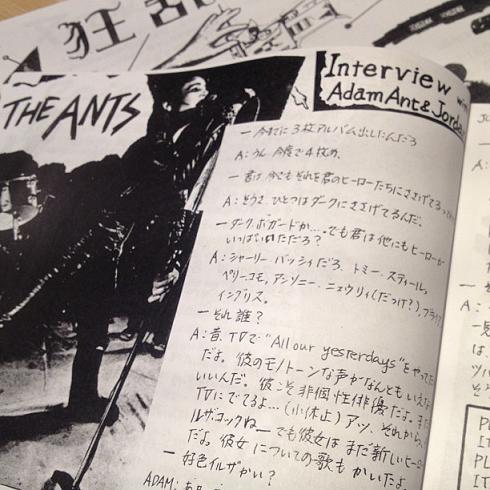 狂
THE ANTS
Interview with
Adam Ant & Jordan
— 今までに3枚アルバム出したんだろ
A:うん 今度で4枚め。
— 君は今でもそれを君のヒーローたちにささげてる
A:そうさ、ひとつはダークにささげてるんだ。
— ダーク・ボガードか…。でも君は他にもヒーローが
いっぱいいただろ?
A:シャーリー・バッシィだろ、トミー・スティール、
ペリーコモ、アンソニー・ニュウリィ(だっけ?)、ブライアン
イングリス。
— それ誰?
A:昔、TVで"All our yesterdays"をやってた
だよ。彼のモノトーンな声がなんともいえな
いいんだ。彼こそ非個性俳優だよ。また
TVにでてるよ…(小休止)アッ、それから、
ルザ・コックね— でも彼女はまだ新しいヒーロー
だよ。彼女についての歌もかいたよ。
— 好色イルザかい?
ADAM: